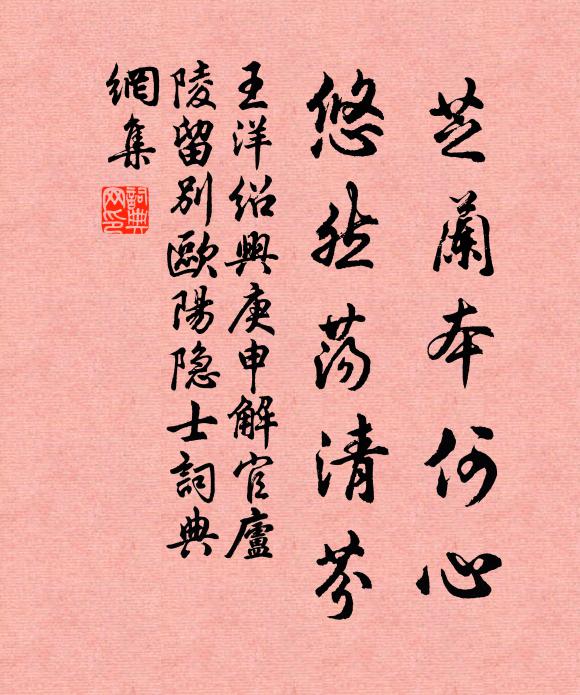 芝蘭本何心
悠然荡清芬
王洋绍興庚申解官廬
陵留别歐陽隐士詞典
網集
詞典网印